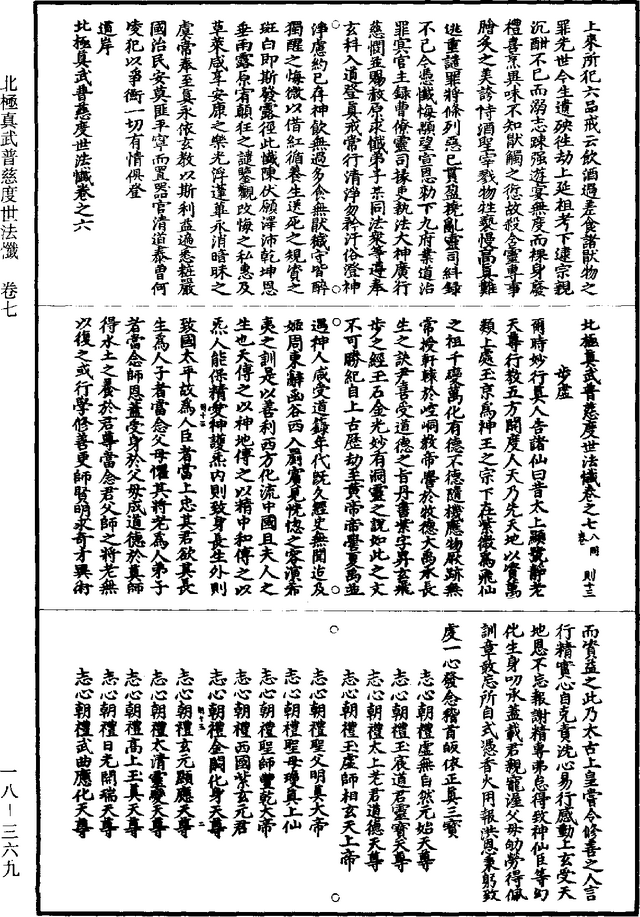 上來所犯六品戒云飲酒過差食諸獸物之
罪先世今生遺殃往劫上延祖考下逮宗親
沉酣不已而溺志踈强遊宴無度而裸身廢
禮喜烹異味不知獸觸之愆故殺含靈專事
膾炙之美誇恃酒聖宰戮物性褻慢高真難
逃重譴罪將條列惡已貫盈撓亂靈司糾録
不已今憑懺悔顒望宣恩勅下九府業道治
罪冥官主録曹僚靈司掾吏執法大神廣行
慈憫並賜赦原求懺弟子某同法衆等遵奉
玄科入道登真戒常行清淨勿矜汙俗澄神
淨慮約已存神飲無過多食無厭守皆醉
獨醒之悔微以借紅循養生送死之規資之
斑白即斯發露徑此懺陳伏願澤沛乾坤恩
垂雨露原宥顛狂之譴鑒觀改悔之私惠及
草萊咸享安康之樂光浮蓬蓽永消暗昧之
虞常奉至真永依玄教以斯利益遍悉莊嚴
國治民安莫匪平寧而置器官清道泰曹何
凌犯以爭衝一切有情俱登
道岸
北極真武普慈度世法懺卷之六
北極真武普慈度世法懺卷之七 八同卷 則十三
步虛
爾時妙行真人告諸仙曰昔太上顯號靜老
天尊行教五方開度人天乃先天地以資萬
類上處玉京為神王之宗下在紫微為飛仙
之祖千變萬化有德不德隨機應物厥跡無
常授軒轅於崆峒教帝嚳於牧德大禹承長
生之訣尹喜受道德之旨丹書紫字昇玄飛
步之經玉石金光妙有洞靈之說如此之文
不可勝紀自上古歷劫至黄帝帝嚳夏禹並
遇神人咸受道籙年代既久經史無聞迨及
姬周東辭函谷西入罽賓見恍惚之容演希
夷之訓是以善利西方化流中國且夫人之
生也天傳之以神地傳之以精中和傳之以
炁人能保精愛神護炁内則致身長生外則
致國太平故為人臣者當上忠其君欲其長
生為人子者當念父母懼其將老為人弟子
者當念師恩蓋受身於父母成道德於真師
得水土之養於君尊當念君父師之將老無
以復之或行學修善更師賢明求奇才異術
而資益之此乃太古上皇當令修善之人言
行精實心自克責沈心易行感動上玄受天
地恩不忘報謝精專弗怠得致神仙臣等幻
化生身叨承蓋載君親寵渥父母劬勞得佩
訓章敢忘所自式憑香火用報洪恩秉躬致
虔一心發念稽首皈依正真三寶
志心朝禮虛無自然元始天尊
志心朝禮太上老君道德天尊
志心朝禮玉宸道君靈寶天尊
志心朝禮玉虛師相玄天上帝
志心朝禮聖父明真大帝
志心朝禮聖母瓊真上仙
志心朝禮聖師豐乾天帝
志心朝禮西國紫玄元君
志心朝禮金闕化身天尊
志心朝禮玄元顯應天尊
志心朝禮太清靈變天尊
志心朝禮高上玉真天尊
志心朝禮日光開瑞天尊
志心朝禮武曲應化天尊
北極真武普慈度世法懺 卷七
一八－三六九